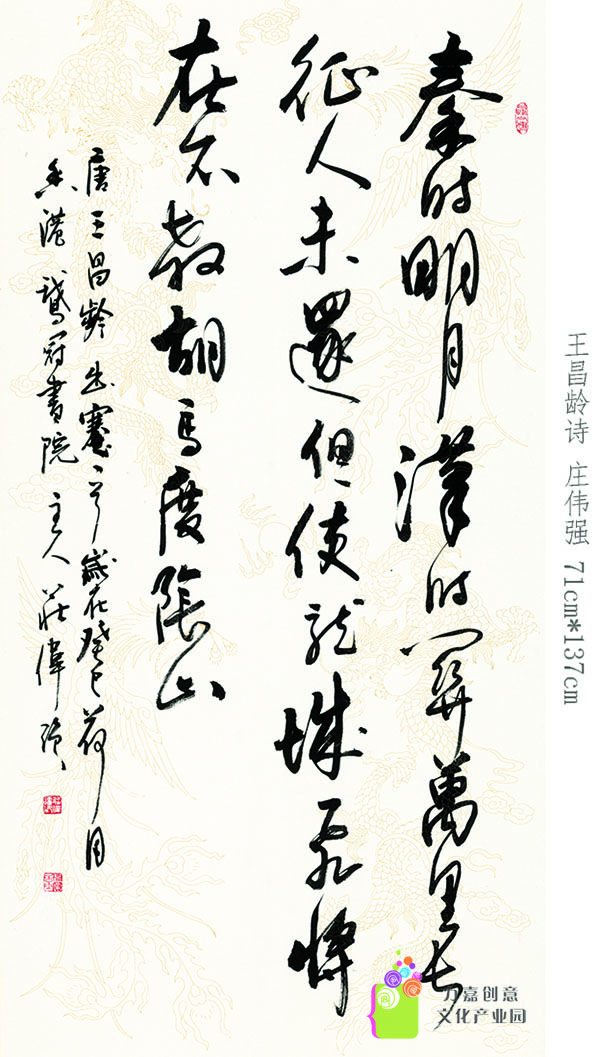 秦时明月漢时關萬里长
征人未還但使龙城飛将
在不教胡马度陰山
唐王昌龄出塞歲在癸巳荷月
香港冠書院主人莊偉強
王昌龄诗 庄伟强 71cm*137cm
嘉创意
文化产业园